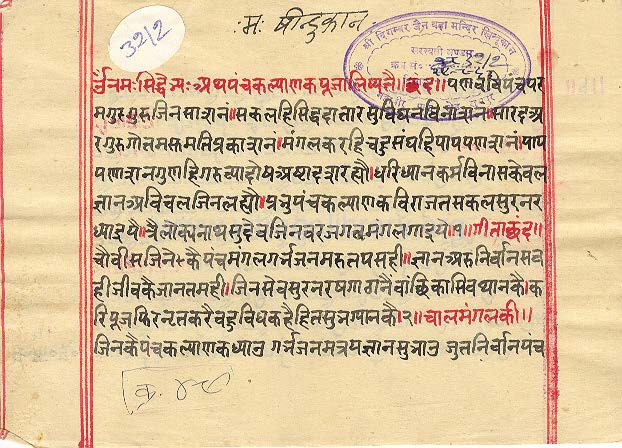 ३२/२
म: षीन्दुकान
श्री दिगम्बर जैन बड़ा मन्दिर
सरस्वती भण्डार
र्द॥नमःसिद्धेभ्यः॥अथपंचकल्याणकपूजालिष्यते॥छंद॥पणविविपंचपर
मगुरुगुरुजिनसासनं॥सकलहिसिद्धदातारसुविघनविनासनं॥सारदअर
गुरुगौतमसमतिप्रकासनं॥मंगलकरहिचहुसंघहिपापपणासनं॥पाप
पणासनगुणहिगरुवादोषअष्टादशरह्यौ॥धरिध्यानकर्मविनासकेवल
ज्ञानअविचलजिनलह्यौ॥प्रभुपंचकल्याणकविराजतसकलसुरनर
ध्याइयै॥त्रैलोक्यनाथसुदेवजिनवरजगतमंगलगाइयै॥१॥गीताछंद॥
चौवीसजिनकैपंचमंगलगर्भजनमहतपसही॥ज्ञानअरुनिर्वानसव
हीजीवकैजानतमही॥जिनसेवसुरनरषगागनैवांछिकासिवथानकै॥क
रिपूजफिरनृतकरैवहुविधकहैहितसुभग्यानकै॥२॥चालमंगलकी॥
जिनकैपंचकल्याणकध्यानु गर्भजनमत्रपज्ञानसुभानु जुतनिर्वानपंच